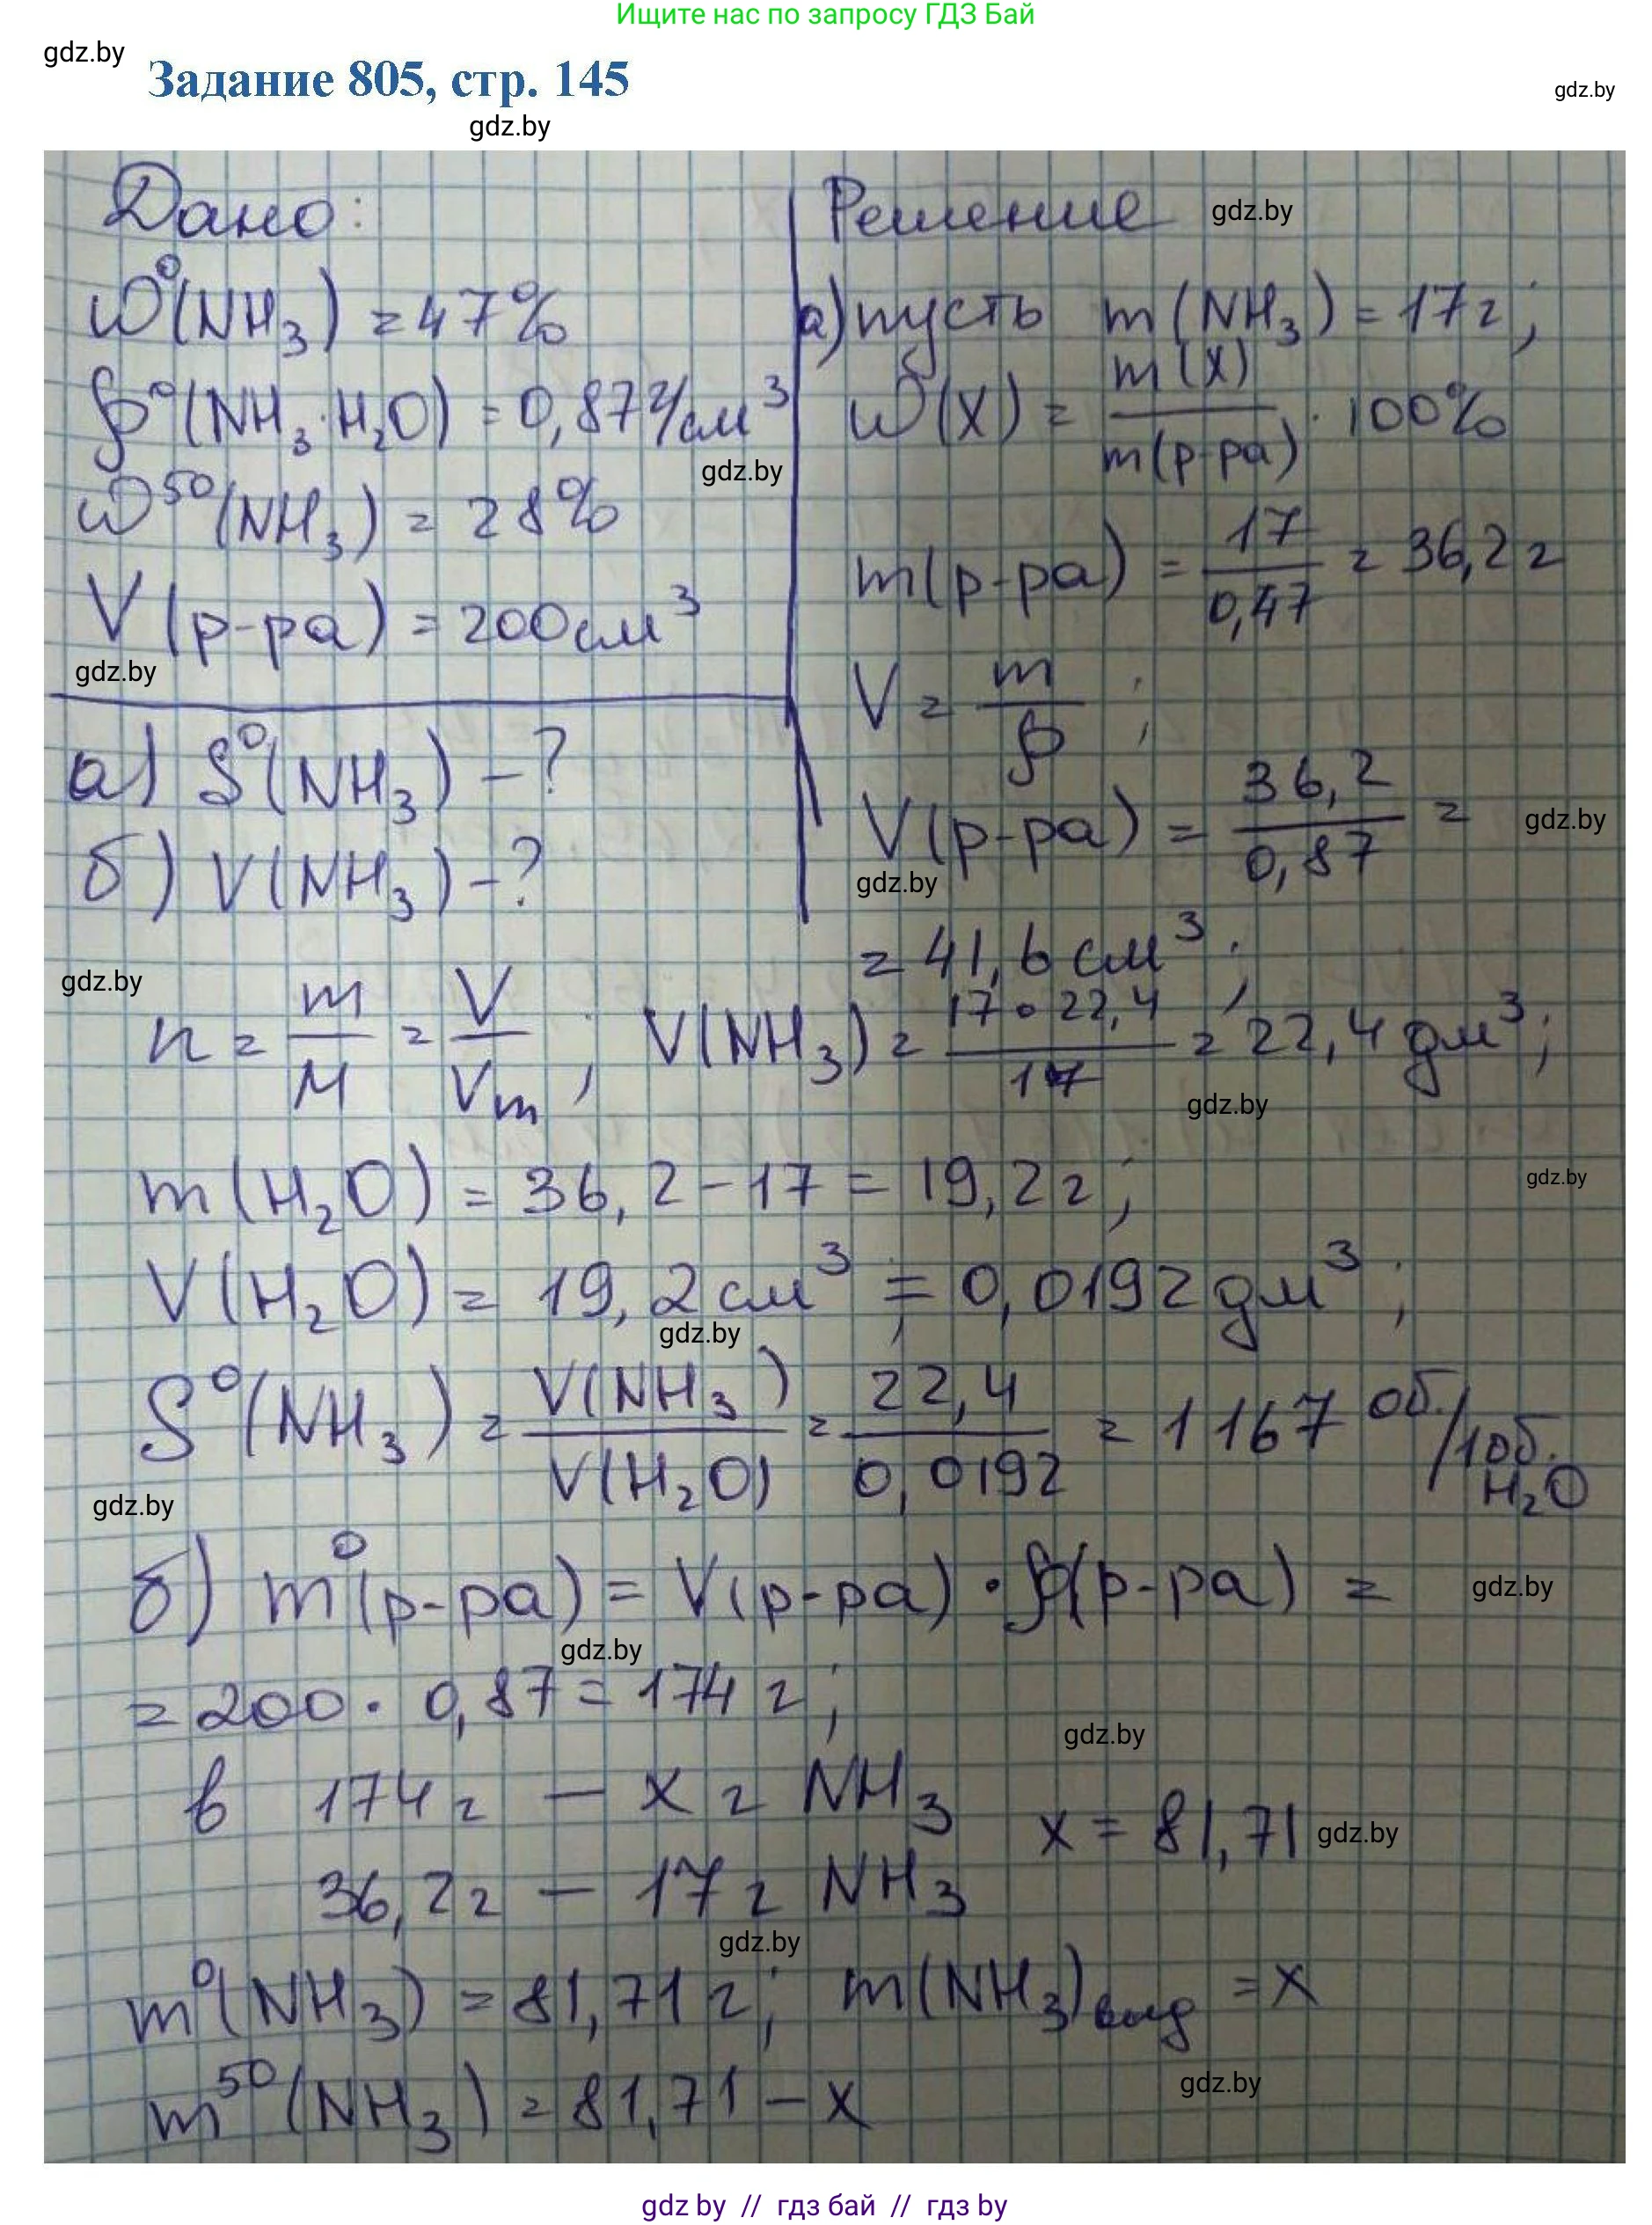 Ищите нас по запросу ГДЗ Бай
gdz.by
Задание 805, стр. 145
gdz.by
gdz.by
Дано:
ω⁰(NH₃) = 47%
ρ⁰(NH₃·H₂O) = 0,87 г/см³
gdz.by
ω⁵⁰(NH₃) = 28%
V(р-ра) = 200 см³
gdz.by
а) S⁰(NH₃) - ?
б) V(NH₃) - ?
Решение
gdz.by
а) пусть m(NH₃) = 17 г;
ω(X) = m(X)/m(р-ра) · 100%
m(р-ра) = 17/0,47 = 36,2 г
V = m/ρ ;
V(р-ра) = 36,2/0,87 =
gdz.by
gdz.by
= 41,6 см³;
gdz.by
n = m/M = V/Vm ; V(NH₃) = 17·22,4/17 = 22,4 дм³;
gdz.by
m(H₂O) = 36,2 - 17 = 19,2 г;
gdz.by
V(H₂O) = 19,2 см³; = 0,0192 дм³;
gdz.by
S⁰(NH₃) = V(NH₃)/V(H₂O) = 22,4/0,0192 = 1167 об./1об. H₂O
gdz.by
б) m⁰(р-ра) = V(р-ра) · ρ(р-ра) =
gdz.by
gdz.by
= 200 · 0,87 = 174 г;
gdz.by
в 174 г — x г NH₃
x = 81,71
gdz.by
36,2 г — 17 г NH₃
gdz.by
m⁰(NH₃) = 81,71 г; m(NH₃)выд = x
gdz.by
m⁵⁰(NH₃) = 81,71 - x
gdz by // гдз бай // гдз by